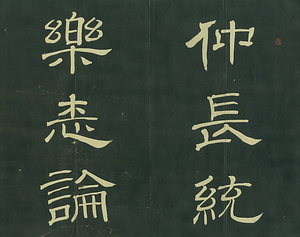 仲長統
樂志論